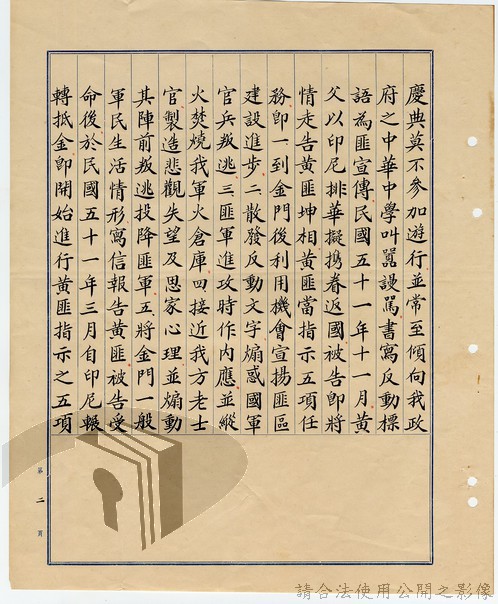 慶典莫不參加遊行並常至傾向我政
府之中華中學叫囂謾罵書寫反動標
語為匪宣傳民國五十一年十一月黃
父以印尼排華擬携眷返國被告即將
情走告黃匪坤相黃匪當指示五項任
務即一到金門後利用機會宣揚匪區
建設進步二散發反動文字煽惑國軍
官兵叛逃三匪軍進攻時作內應並縱
火焚燒我軍火倉庫四接近我方老士
官製造悲觀失望及思家心理並煽動
其陣前叛逃投降匪軍五將金門一般
軍民生活情形寫信報告黃匪被告受
命後於民國五十一年三月自印尼輾
轉抵金即開始進行黃匪指示之五項
第二頁
請合法使用公開之影像